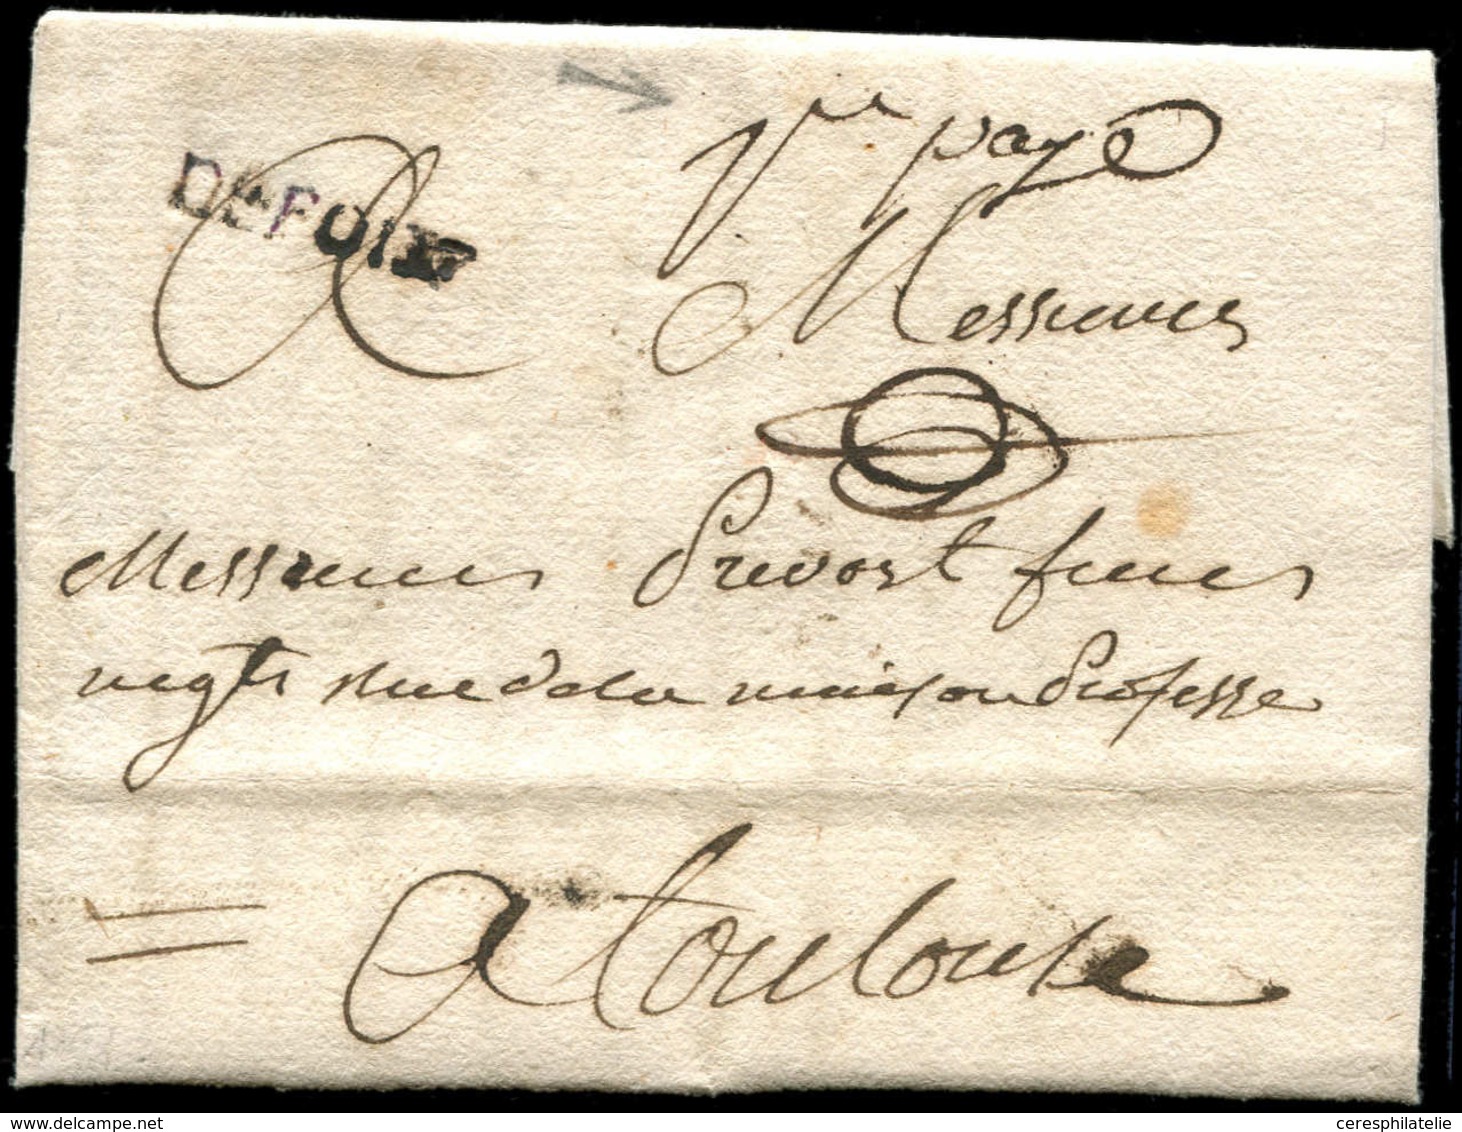 DE FOIX
payé
Messieurs
Messieurs Prevost freres
negts rue de la maison Professe
A toulouse
delcampe.net
ceresphilatelie